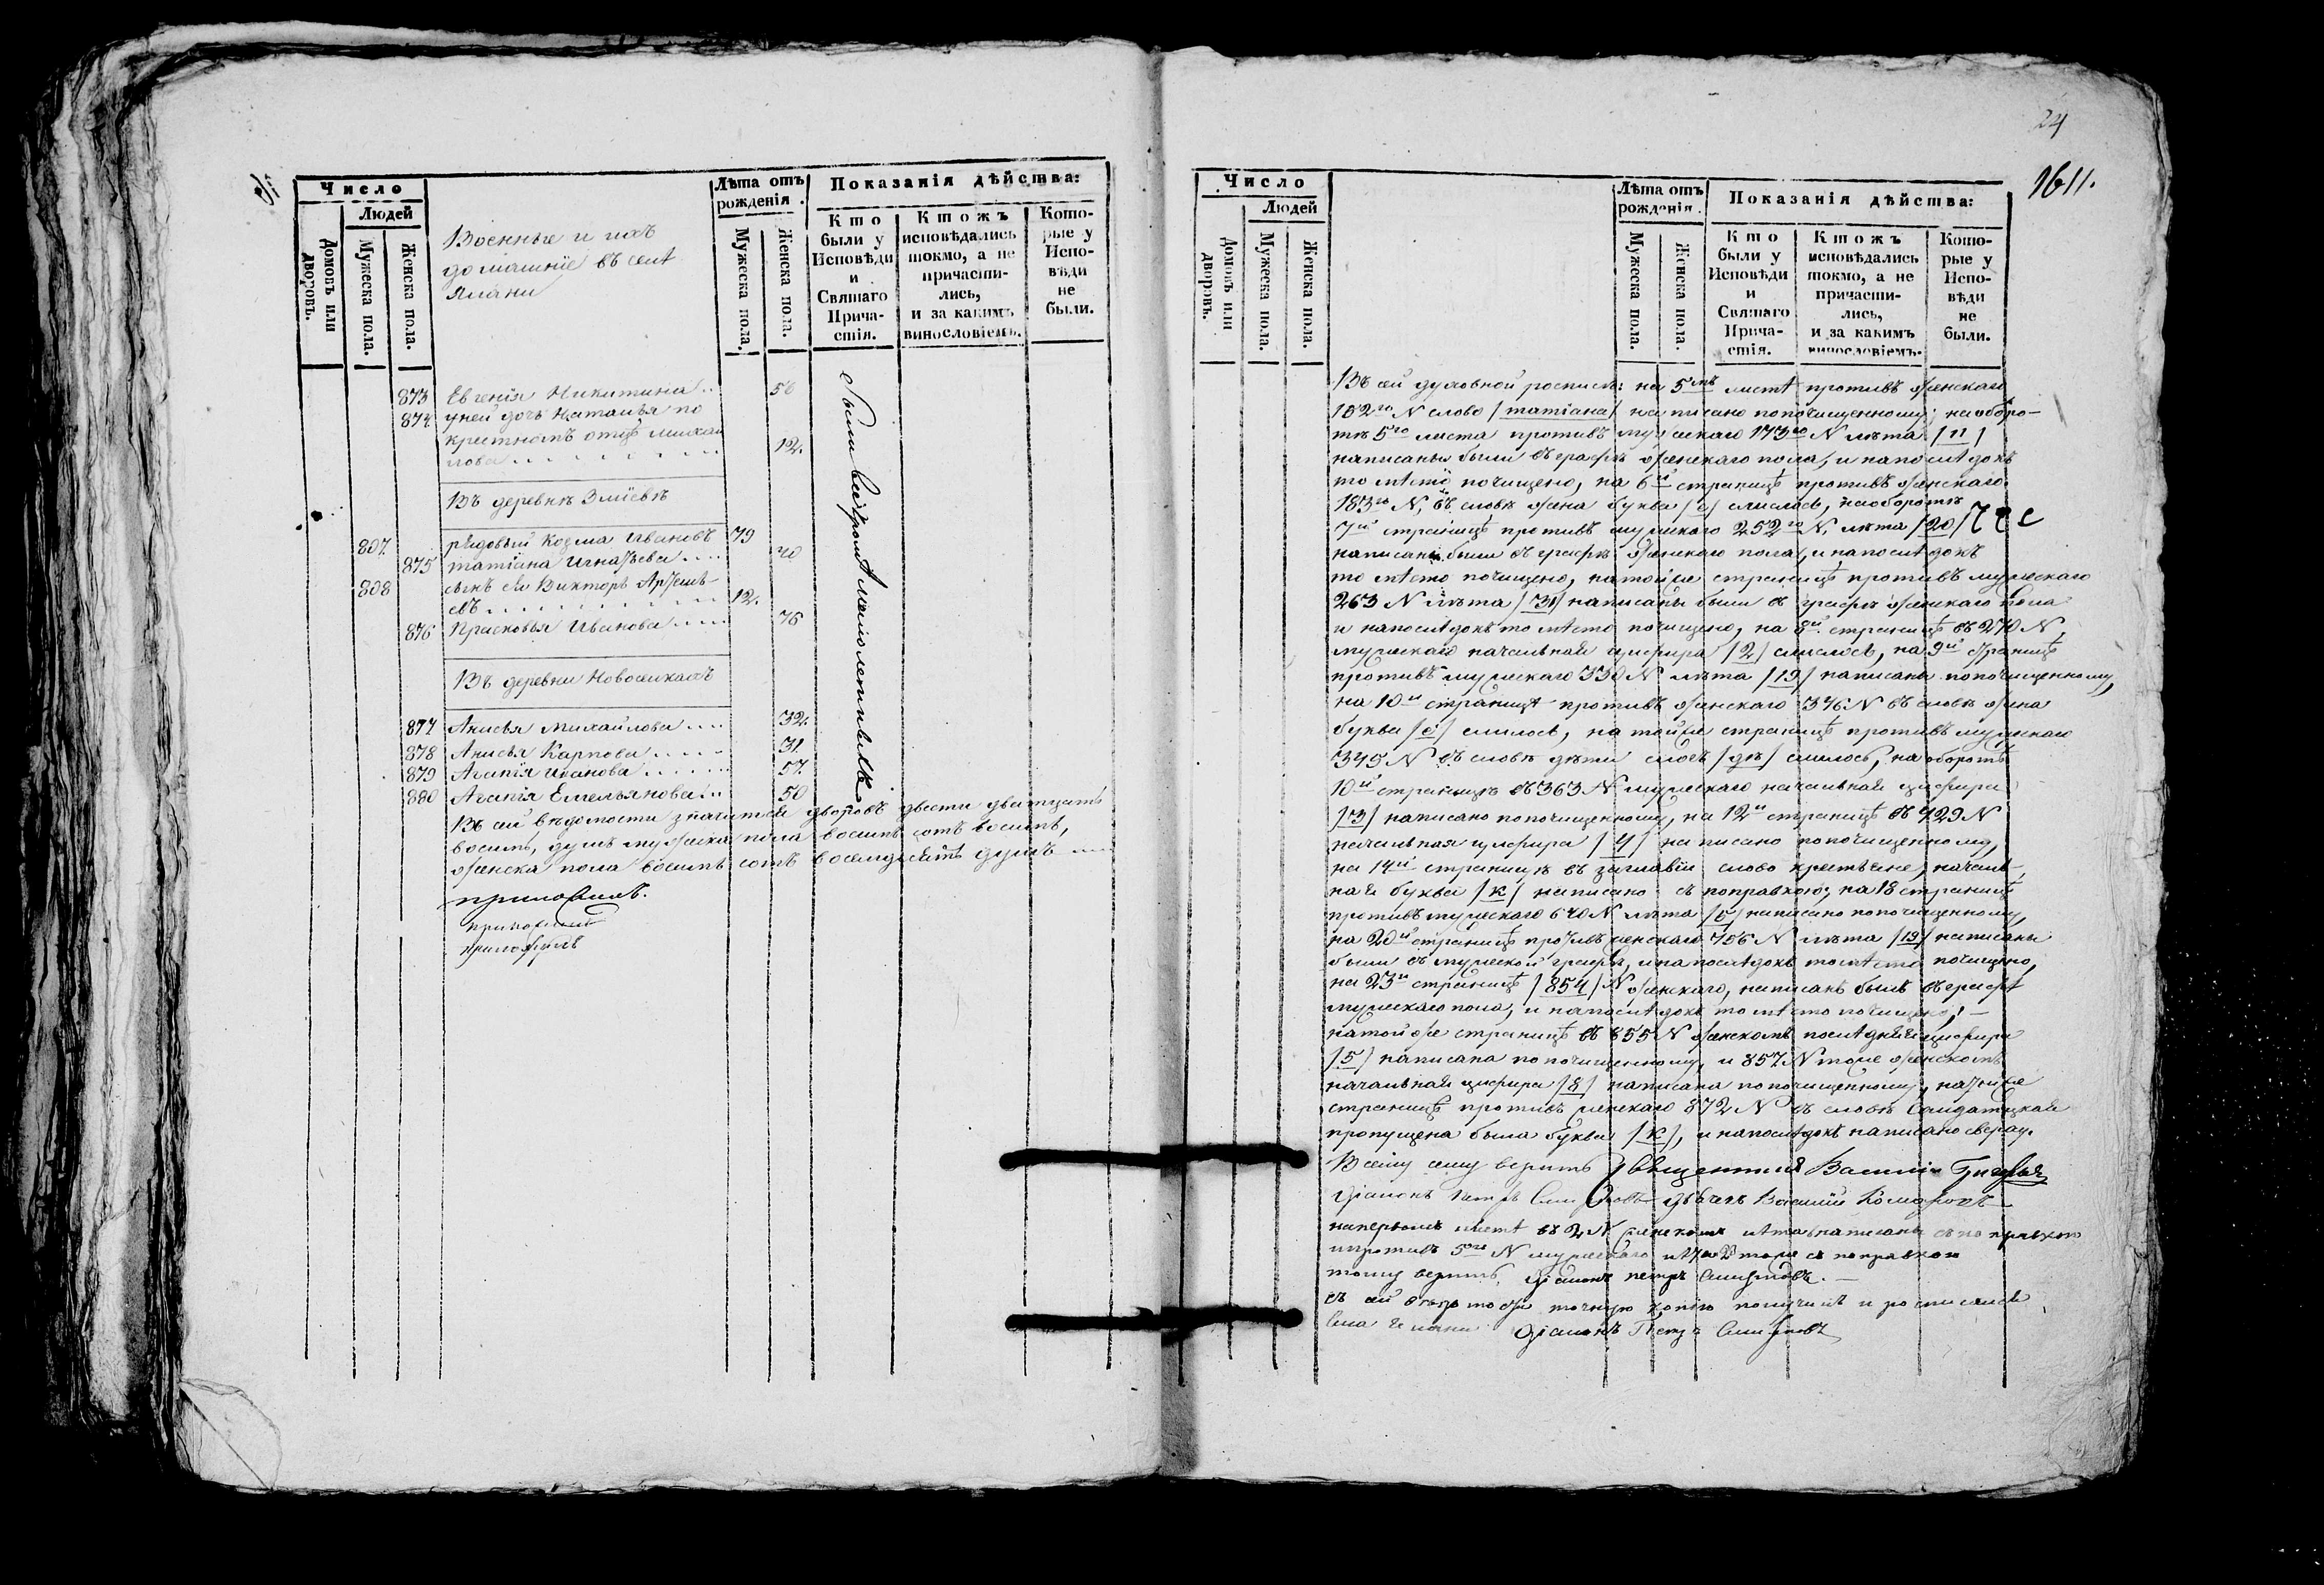 Число
Людей
Домовъ или дворовъ.
Мужеска пола.
Женска пола.
Военные и ихъ
домашнїе въ селѣ
Лѣта отъ рожденія.
Мужеска пола.
Женска пола.
Показанія дѣйства:
Кто были у Исповѣди и Святаго Прича-стія.
Ктожъ исповѣдались токмо, а не причасти-лись, и за какимъ винословіемъ.
Кото-рые у Испо-вѣди не были.
873 Евгенїя Никитина 56
874 у ней дочь Наталья по
крестномъ отцѣ Михаи
лова 12.
Въ деревнѣ Змїевкѣ
807. рядовый Козма Ивановъ 79
875 татїана Игнатьева 40
808 сынъ ея Викторъ Артемь-
евъ 12.
876 Прасковья Иванова 76
Въ деревни Новоселкахъ
877 Анисья Михайлова 32.
878 Анисья Карпова 31.
879 Агапїя Иванова 57.
880 Агапїя Емельянова 50
Въ сей вѣдомости значится дворовъ двести дватцать
восемь, душъ мужеска пола восемь сотъ восемь,
женска пола восемь сотъ восемдесятъ душъ
24
1611.
Число
Людей
Домовъ или дворовъ.
Мужеска пола.
Женска пола.
Лѣта отъ рожденія.
Мужеска пола.
Женска пола.
Показанія дѣйства:
Кто были у Исповѣди и Святаго Прича-стія.
Ктожъ исповѣдались токмо, а не причасти-лись, и за какимъ винословіемъ.
Кото-рые у Испо-вѣди не были.
Въ сей духовной росписѣ: на 5мъ листѣ противъ женскаго
102го N слово /татїана/ написано по почищенному; на оборо-
тѣ 5го листа противъ мужескаго 173го N лѣта /11/
написаны были въ графѣ женскаго пола, и напослѣдокъ
то мѣсто почищено, на 6й страницѣ противъ женскаго
183го N, въ словѣ жена буква /е/ слилось, на оборотѣ
7й страницѣ противъ мужескаго 252го N, лѣта /20/
написаны были въ графѣ женскаго пола, и напослѣдокъ
то мѣсто почищено, на той же страницѣ противъ мужескаго
263 N лѣта /31/ написаны были въ графѣ женскаго пола
и напослѣдокъ то мѣсто почищено, на 8й страницѣ въ 270 N,
мужескаго начальная цыфира /2/ слилось, на 9й страницѣ
противъ мужескаго 330 N лѣта /19/ написаны по почищенному,
на 10й страницѣ противъ женскаго 346 N въ словѣ жена
буква /е/ слилось, на той же страницѣ противъ мужескаго
349 N въ словѣ дѣти слогъ /дѣ/ слилось, на оборотѣ
10й страницѣ въ 363 N мужескаго начальная цыфира
/3/ написано по почищенному, на 12й страницѣ въ 429 N
начальная цыфира /4/ написано по почищенному,
на 14й страницѣ въ заглавїи слово крестьяне, началь-
ная буква /к/ написано съ поправкою; на 18 страницѣ
противъ мужескаго 640 N лѣта /6/ написано по почищенному,
на 20й страницѣ противъ женскаго 756 N лѣта /19/ написаны
были въ мужеской графѣ, и напослѣдокъ то мѣсто почищено,
на 23й страницѣ /854/ N женскаго, написанъ былъ въ графѣ
мужескаго пола, и напослѣдокъ то мѣсто почищено;
на той же страницѣ въ 855 N женскомъ послѣдняя цыфира
/5/ написана по почищенному, и 857 N тоже женскомъ
начальная цыфира /8/ написана по почищенному, на той же
страницѣ противъ женскаго 872 N въ словѣ салдатская
пропущена была буква /к/, и напослѣдокъ написано сверху.
Всему сему верить Священникъ Василий
Дїаконъ Петръ Смирновъ дьячекъ Василий
на первомъ листѣ въ 2 N женскомъ лѣта написаны съ поправкою
и противъ 5го N мужескаго тоже съ поправкою
тому верить, Дїаконъ Петръ Смирновъ.
съ сей точную копїю получилъ и росписался
Дїаконъ Петръ Смирновъ